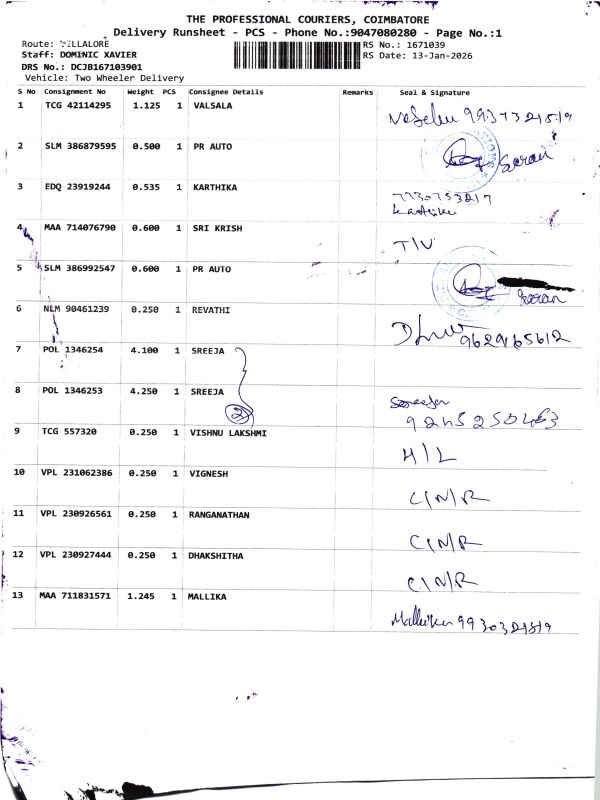 THE PROFESSIONAL COURIERS, COIMBATORE
Delivery Runsheet - PCS - Phone No.:9047080280 - Page No.:1
Route: VILLALORE RS No.: 1671039
Staff: DOMINIC XAVIER RS Date: 13-Jan-2026
DRS No.: DCJB167103901
Vehicle: Two Wheeler Delivery
S No Consignment No Weight PCS Consignee Details Remarks Seal & Signature
1 TCG 42114295 1.125 1 VALSALA
2 SLM 386879595 0.500 1 PR AUTO Saran
3 EDQ 23919244 0.535 1 KARTHIKA 7730753217
Karthika
4 MAA 714076790 0.600 1 SRI KRISH T/V
5 SLM 386992547 0.600 1 PR AUTO Saran
6 NLM 90461239 0.250 1 REVATHI 9629165612
7 POL 1346254 4.100 1 SREEJA
8 POL 1346253 4.250 1 SREEJA Sreeja
2
9 TCG 557320 0.250 1 VISHNU LAKSHMI H/L
10 VPL 231062386 0.250 1 VIGNESH C/N/R
11 VPL 230926561 0.250 1 RANGANATHAN C/N/R
12 VPL 230927444 0.250 1 DHAKSHITHA C/N/R
13 MAA 711831571 1.245 1 MALLIKA Mallika